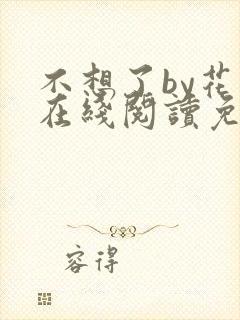 不想了by花
在线閱讀免
容得